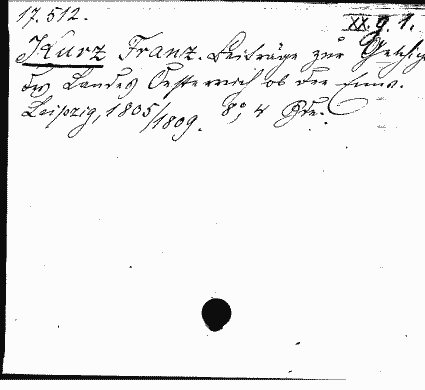 17.512.
XX. g. 1.
Kurz Franz. Beiträge zur Geschig
des Landes Oesterreich ob der Enns.
Leipzig, 1805/1809. 8°, 4 Bde.